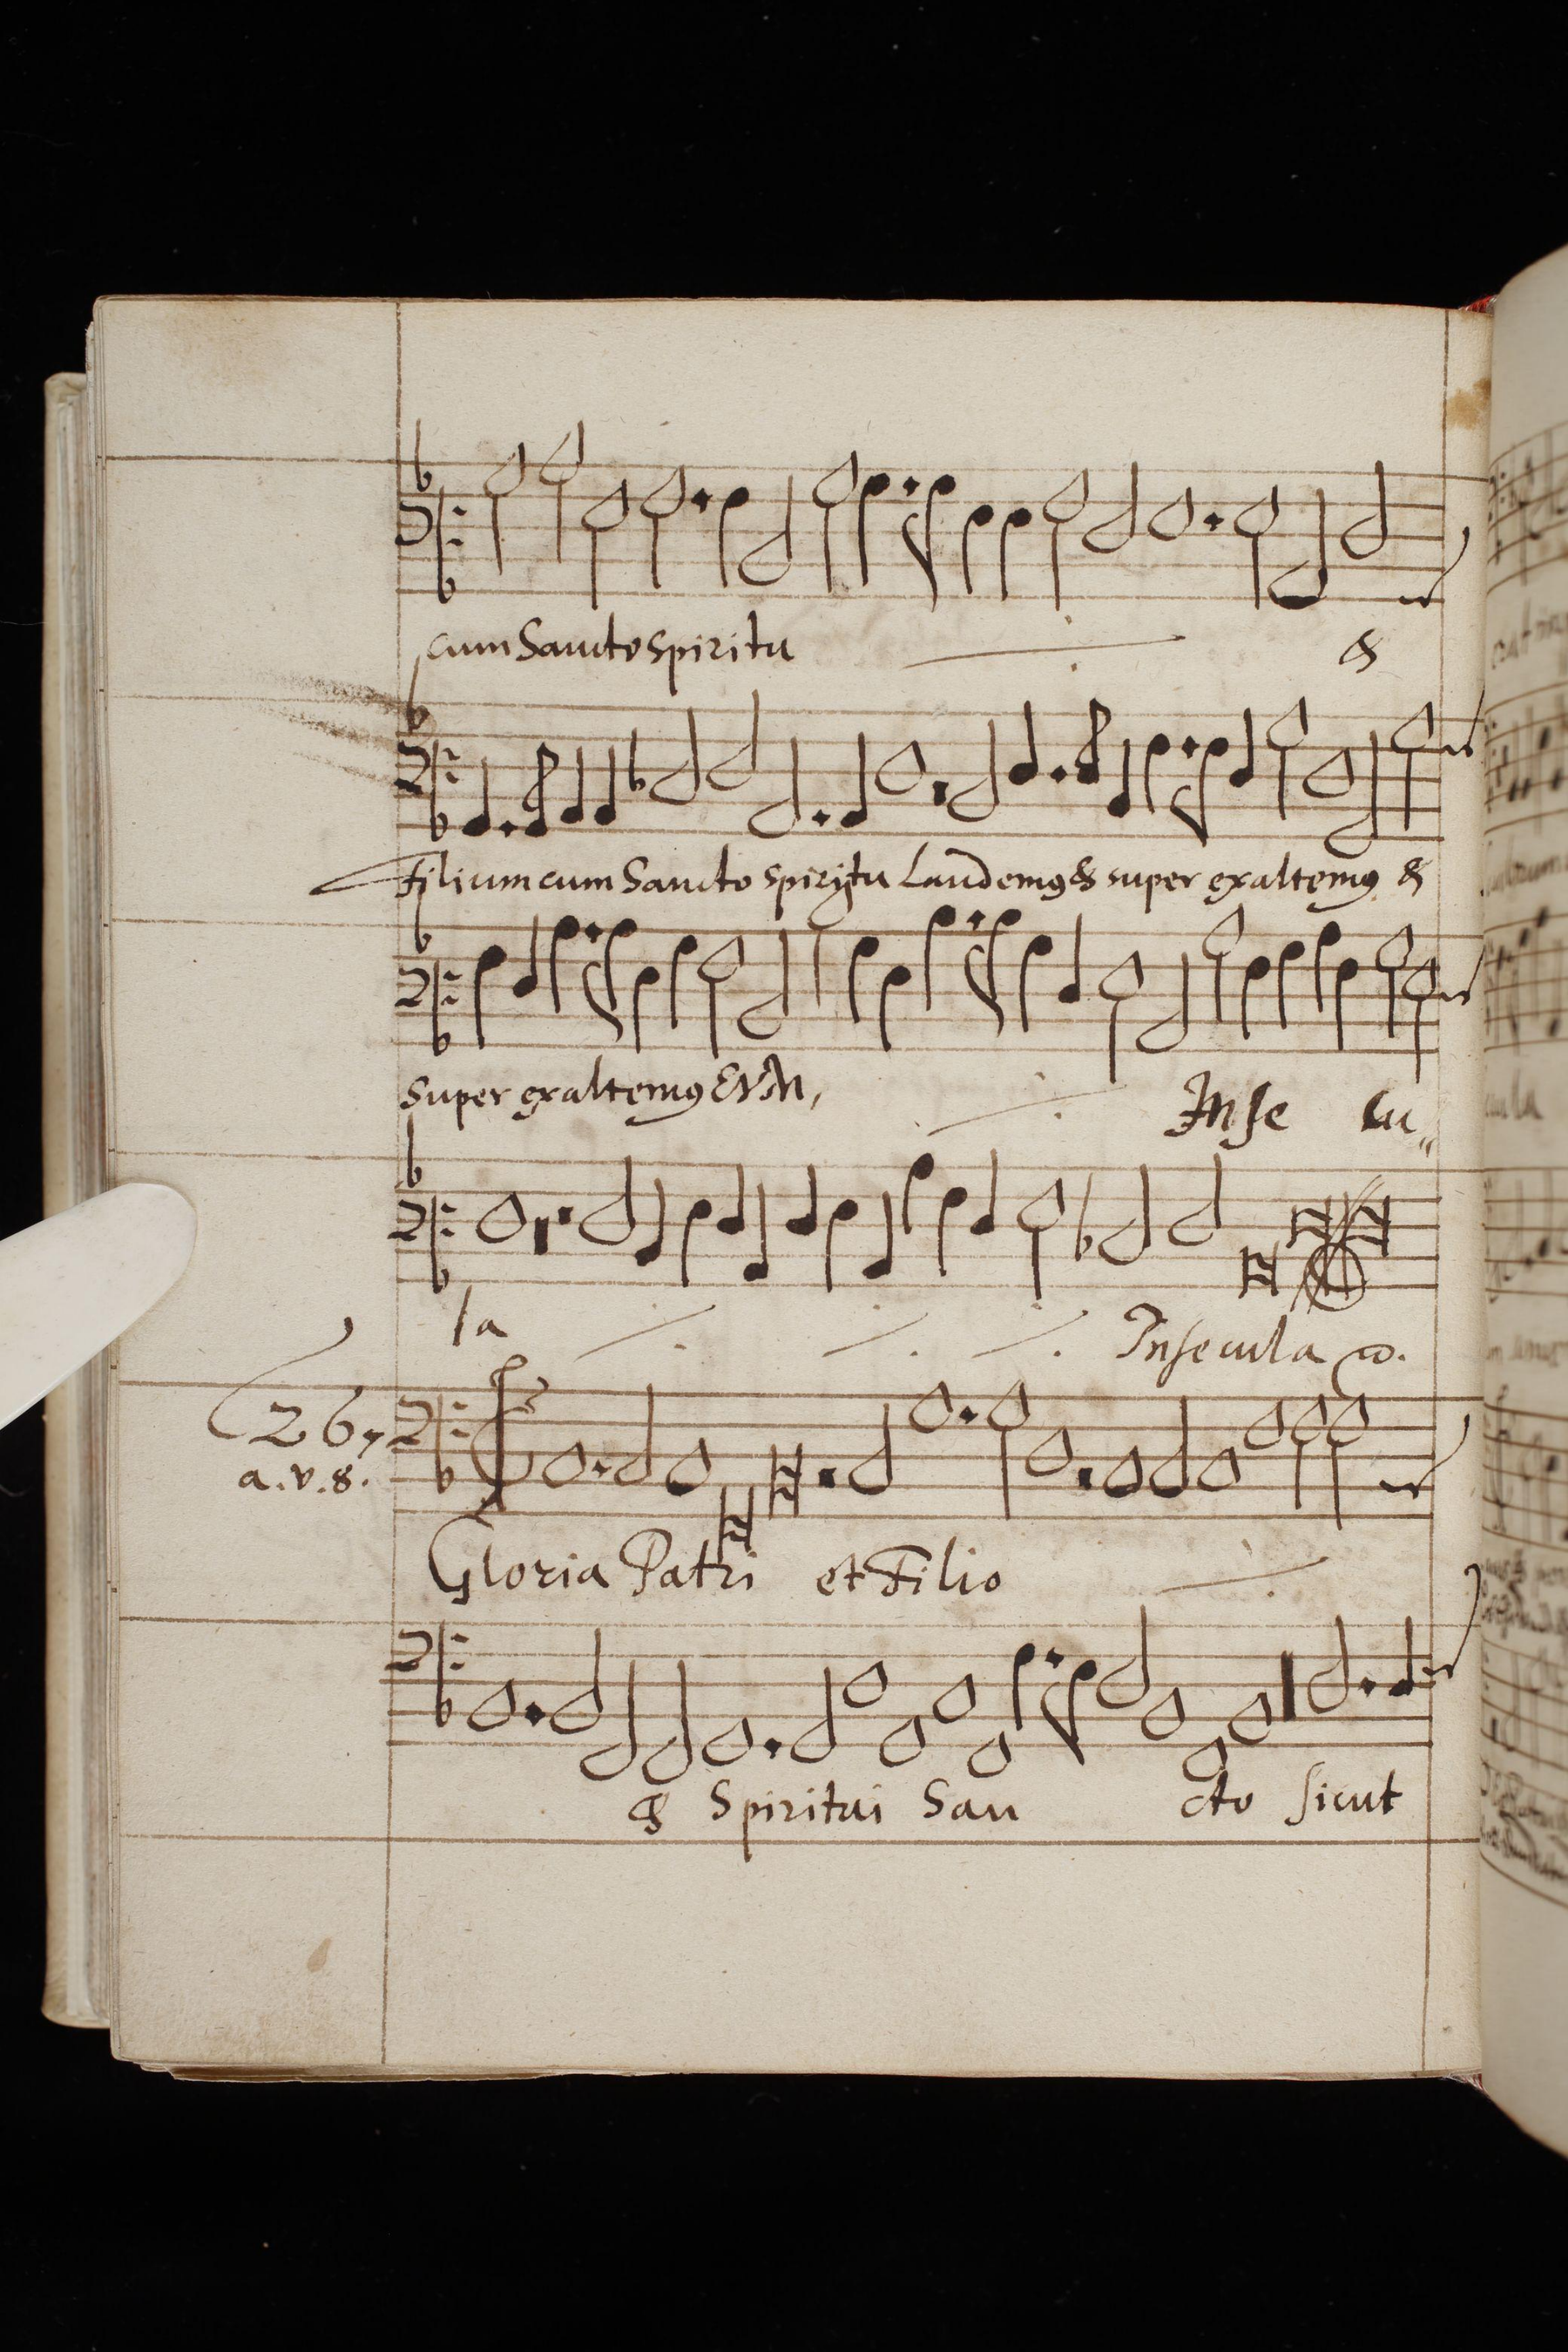 cum Sancto spiritu &
Filium cum Sancto spiritu Laudemus & super exaltemus &
super exaltemus EVM,
In se cu„
la
In secula
267
a.v.8.
Gloria Patri et Filio
& Spiritui San cto sicut